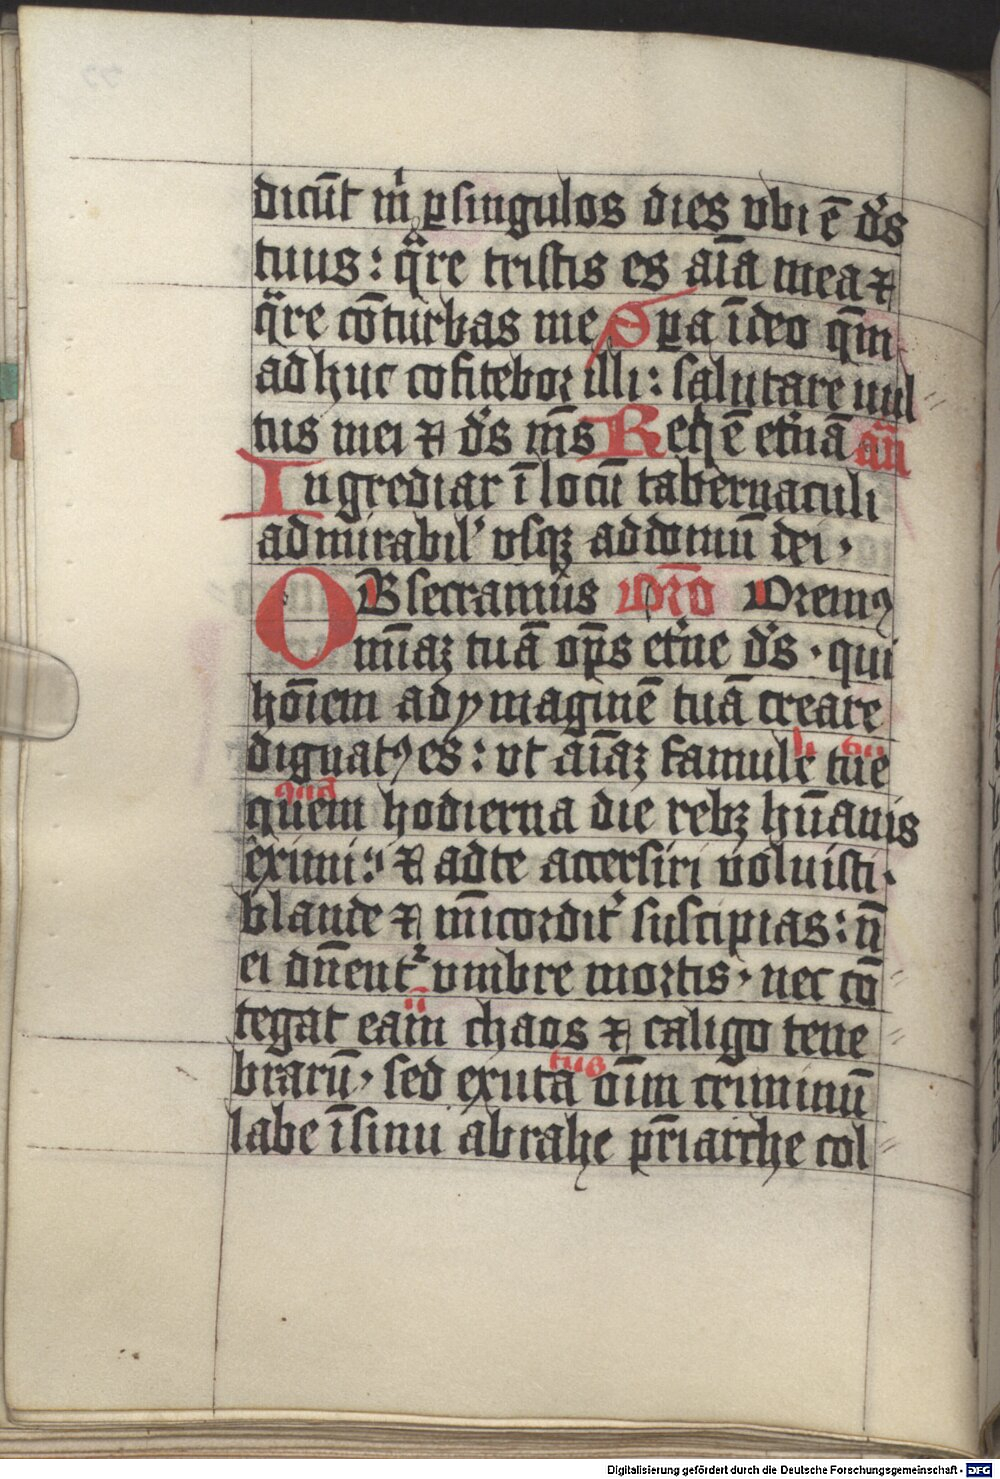 dicūt m̄ ꝑ singulos dies vbi ē dˢs
tuus : qͣre tristis es aīa mea ⁊
qͣre cōturbas me Spͣa ī deo qm̄
adhuc cōfitebor illi : salutare uul
tus mei ⁊ dˢs m̄s Reqͥē et̾nā an̄
Ingrediar ī locū tabernaculi
admirabil' vsqꝫ ad domū dei ·
OBsecramus Orō Oremꝰ
mīaꝫ tuā op̄s et̾ne dˢs · qui
hōīem ad ymaginē tuā creare
dignatꝰ es : vt aīaꝫ famule tue
li tui
quem hodierna die rebꝫ hūanis
quā
eximi : ⁊ ad te accersiri uoluisti ·
blande ⁊ mīcordit̾ suscipias : n̄
ei dn̄ent̾ vmbre mortis · nec cō
tegat eam chaos ⁊ caligo tene
brarū · sed exuta oīm criminū
tus
labe ī sinu abrahe pr̄iarche col
Digitalisierung gefördert durch die Deutsche Forschungsgemeinschaft - DFG